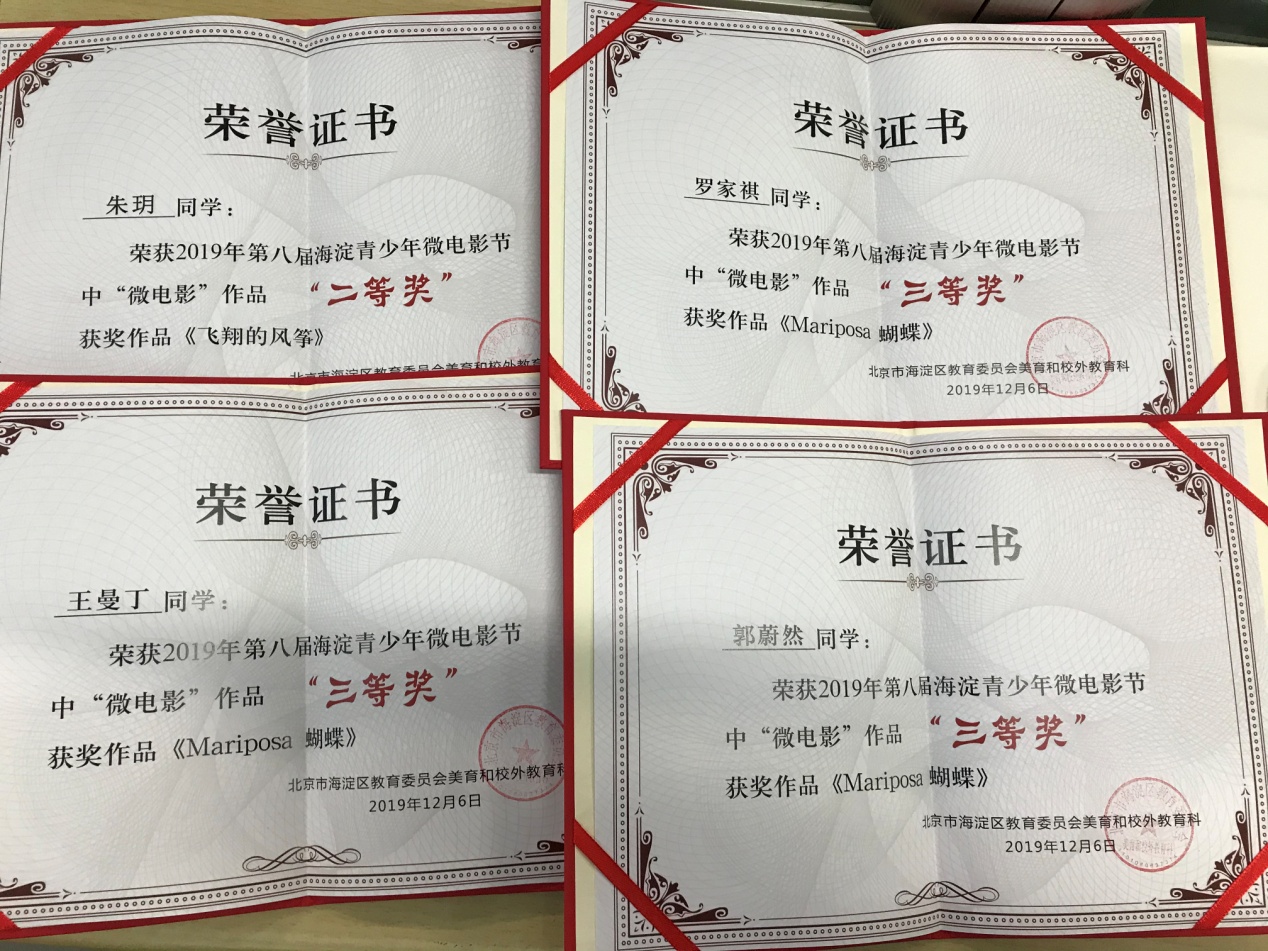 荣誉证书
朱玥 同学：
荣获2019年第八届海淀青少年微电影节
中“微电影”作品 “二等奖”
获奖作品《飞翔的风筝》
北京市海淀区教育委员会美育和校外教育
荣誉证书
罗家祺 同学：
荣获2019年第八届海淀青少年微电影节
中“微电影”作品 “三等奖”
获奖作品《Mariposa 蝴蝶》
北京市海淀区教育委员会美育和校外教育科
2019年12月6日
荣誉证书
王曼丁 同学：
荣获2019年第八届海淀青少年微电影节
中“微电影”作品 “三等奖”
获奖作品《Mariposa 蝴蝶》
北京市海淀区教育委员会美育和校外教育科
2019年12月6日
荣誉证书
郭蔚然 同学：
荣获2019年第八届海淀青少年微电影节
中“微电影”作品 “三等奖”
获奖作品《Mariposa 蝴蝶》
北京市海淀区教育委员会美育和校外教育科
2019年12月6日